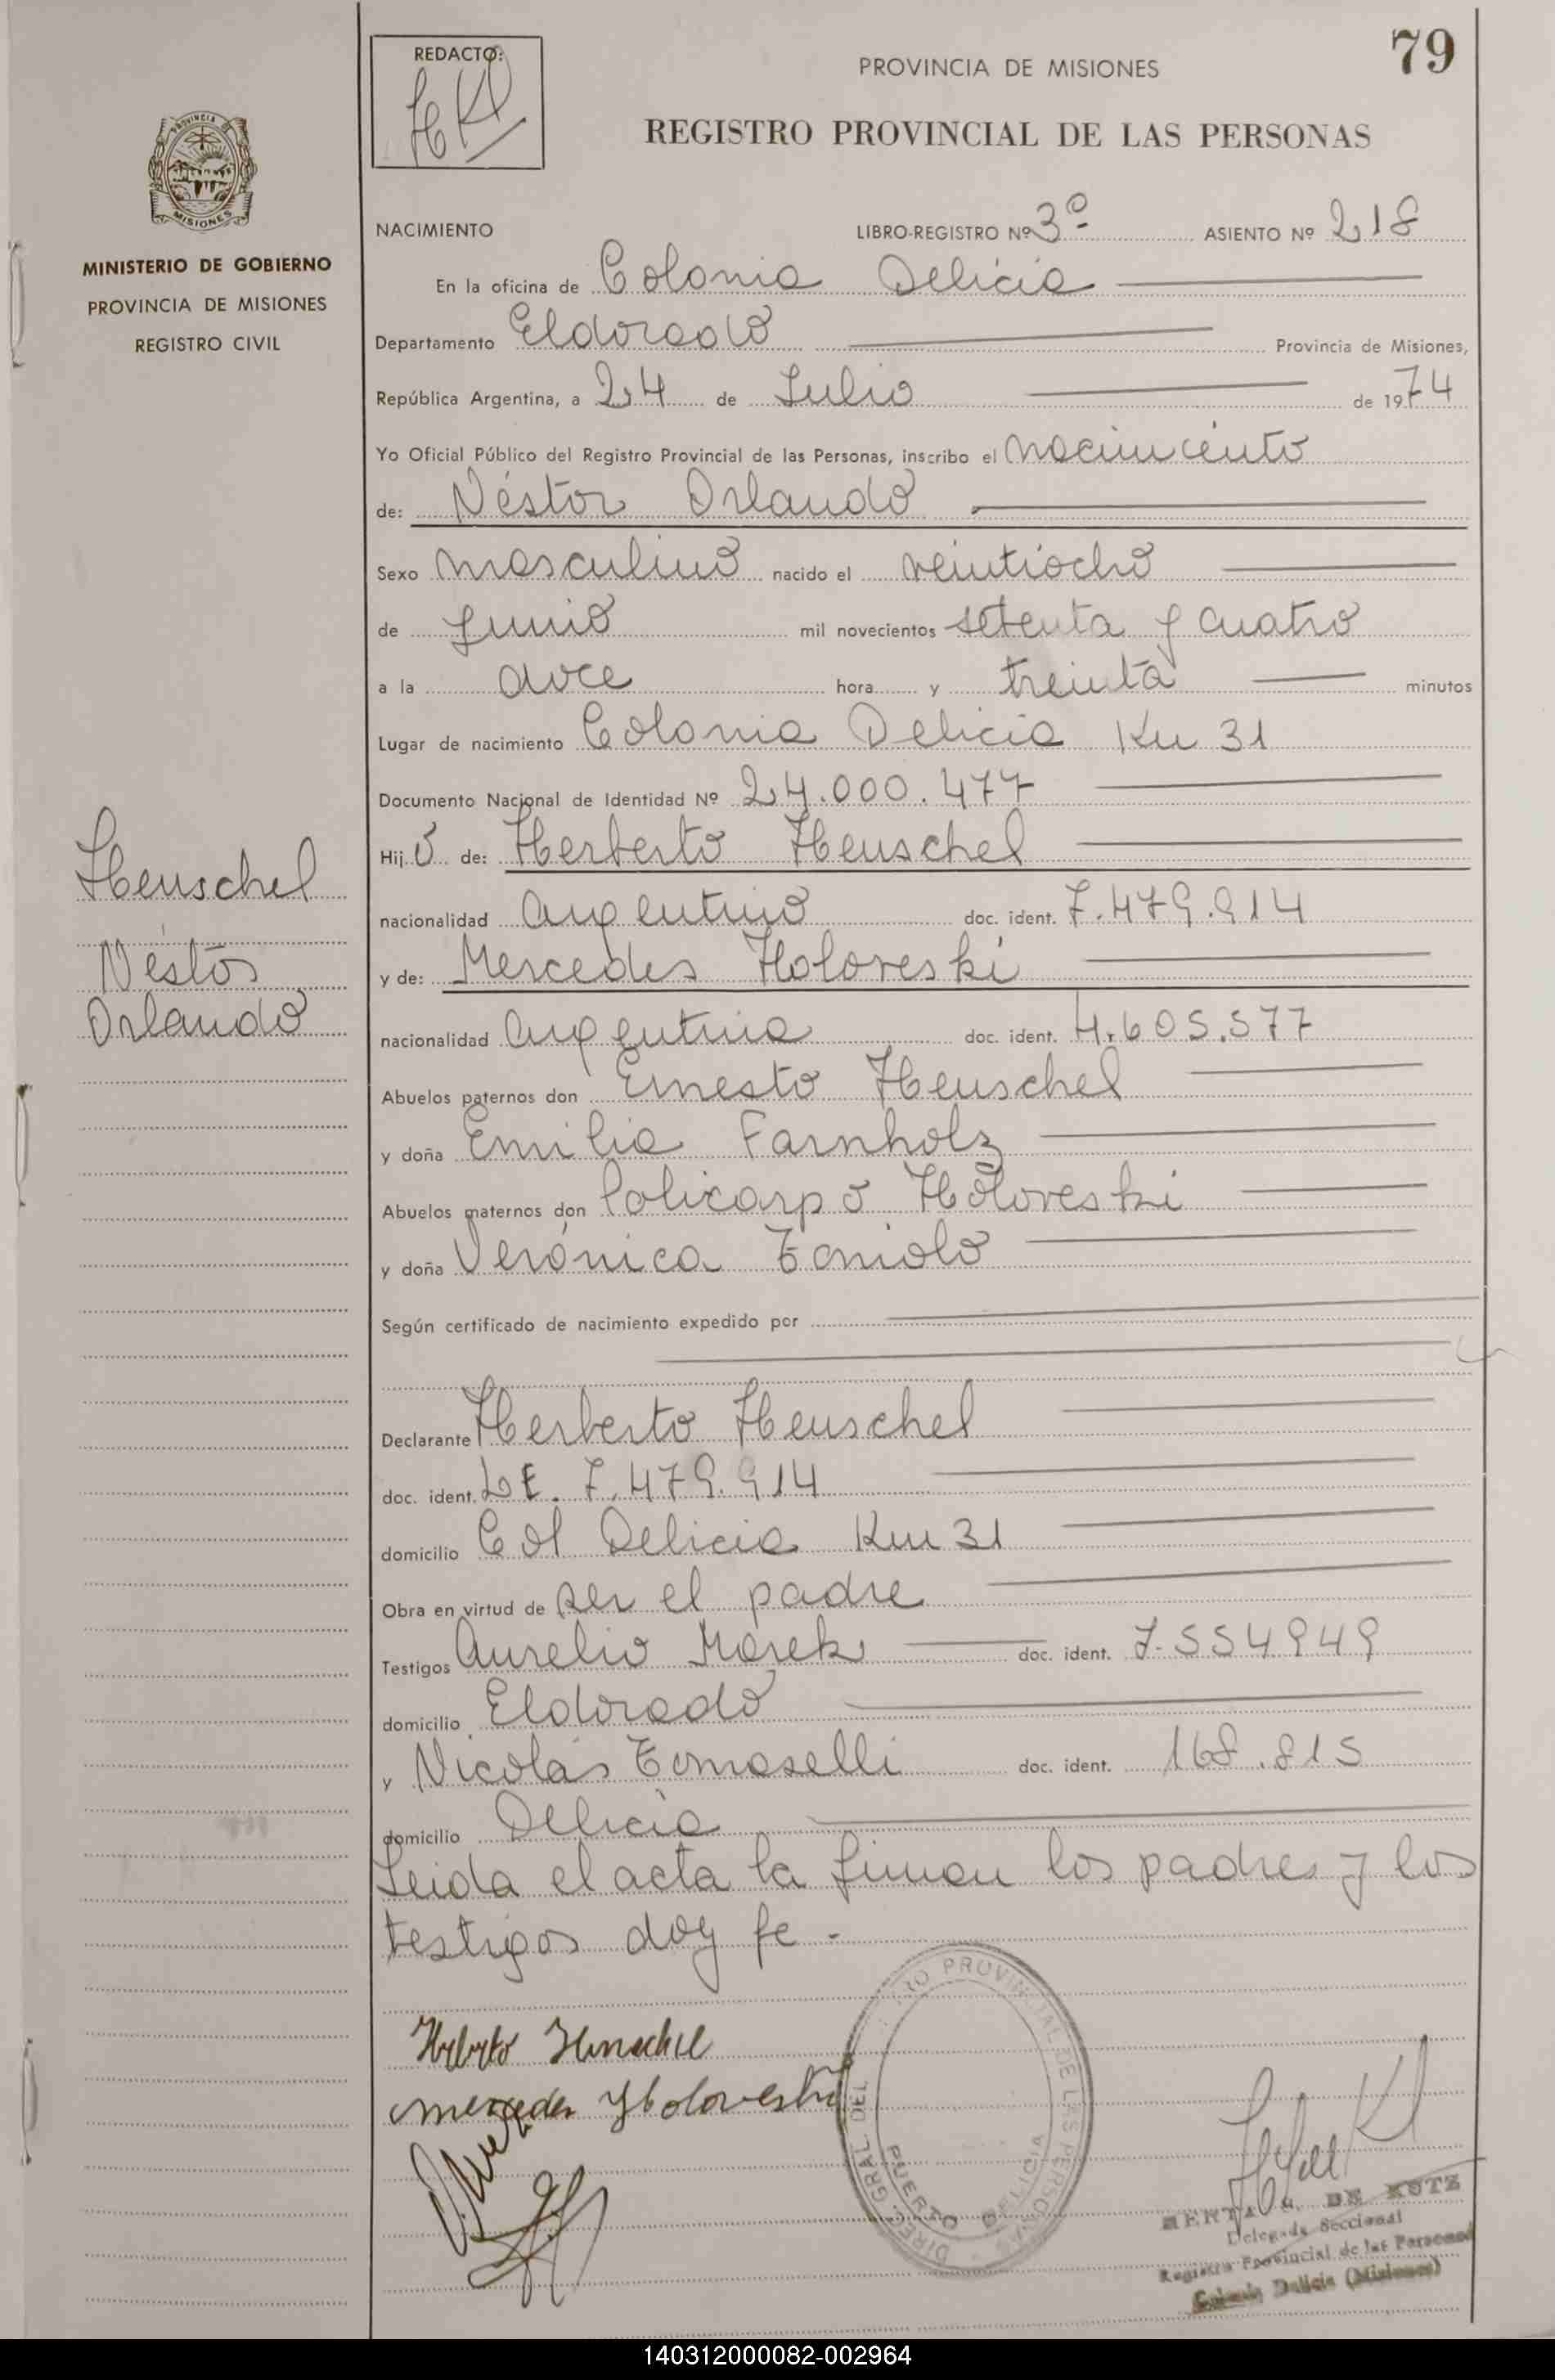 79
REDACTO:
PROVINCIA DE MISIONES
REGISTRO PROVINCIAL DE LAS PERSONAS
PROVINCIA
MISIONES
MINISTERIO DE GOBIERNO
PROVINCIA DE MISIONES
REGISTRO CIVIL
Heuschel
Néstor
Orlando
NACIMIENTO LIBRO-REGISTRO Nº 3º ASIENTO Nº 218
En la oficina de Colonia Delicia
Departamento Eldorado Provincia de Misiones,
República Argentina, a 24 de Julio de 1974
Yo Oficial Público del Registro Provincial de las Personas, inscribo el nacimiento
de: Néstor Orlando
Sexo masculino nacido el veintiocho
de Junio mil novecientos setenta y cuatro
a la doce hora y treinta minutos
Lugar de nacimiento Colonia Delicia Km 31
Documento Nacional de Identidad Nº 24.000.477
Hijo de: Herberto Heuschel
nacionalidad argentino doc. ident. 7.479.914
y de: Mercedes Holoveski
nacionalidad argentina doc. ident. 4.605.577
Abuelos paternos don Ernesto Heuschel
y doña Emilia Farnholz
Abuelos maternos don Policarpo Holoveski
y doña Verónica Toniolo
Según certificado de nacimiento expedido por
Declarante Herberto Heuschel
doc. ident. LE. 7.479.914
domicilio Col Delicia Km 31
Obra en virtud de ser el padre
Testigos Aurelio Marek doc. ident. 7.554949
domicilio Eldorado
y Nicolás Tomaselli doc. ident. 168.815
domicilio Delicia
Leida el acta la firman los padres y los
testigos doy fe.-
Herberto Heuschel
Mercedes Holoveski
DIREC. GRAL. DEL REGISTRO PROVINCIAL DE LAS PERSONAS
PUERTO DELICIA
DE KOTZ
Delegada Seccional
Registro Provincial de las Personas
Colonia Delicia (Misiones)
140312000082-002964